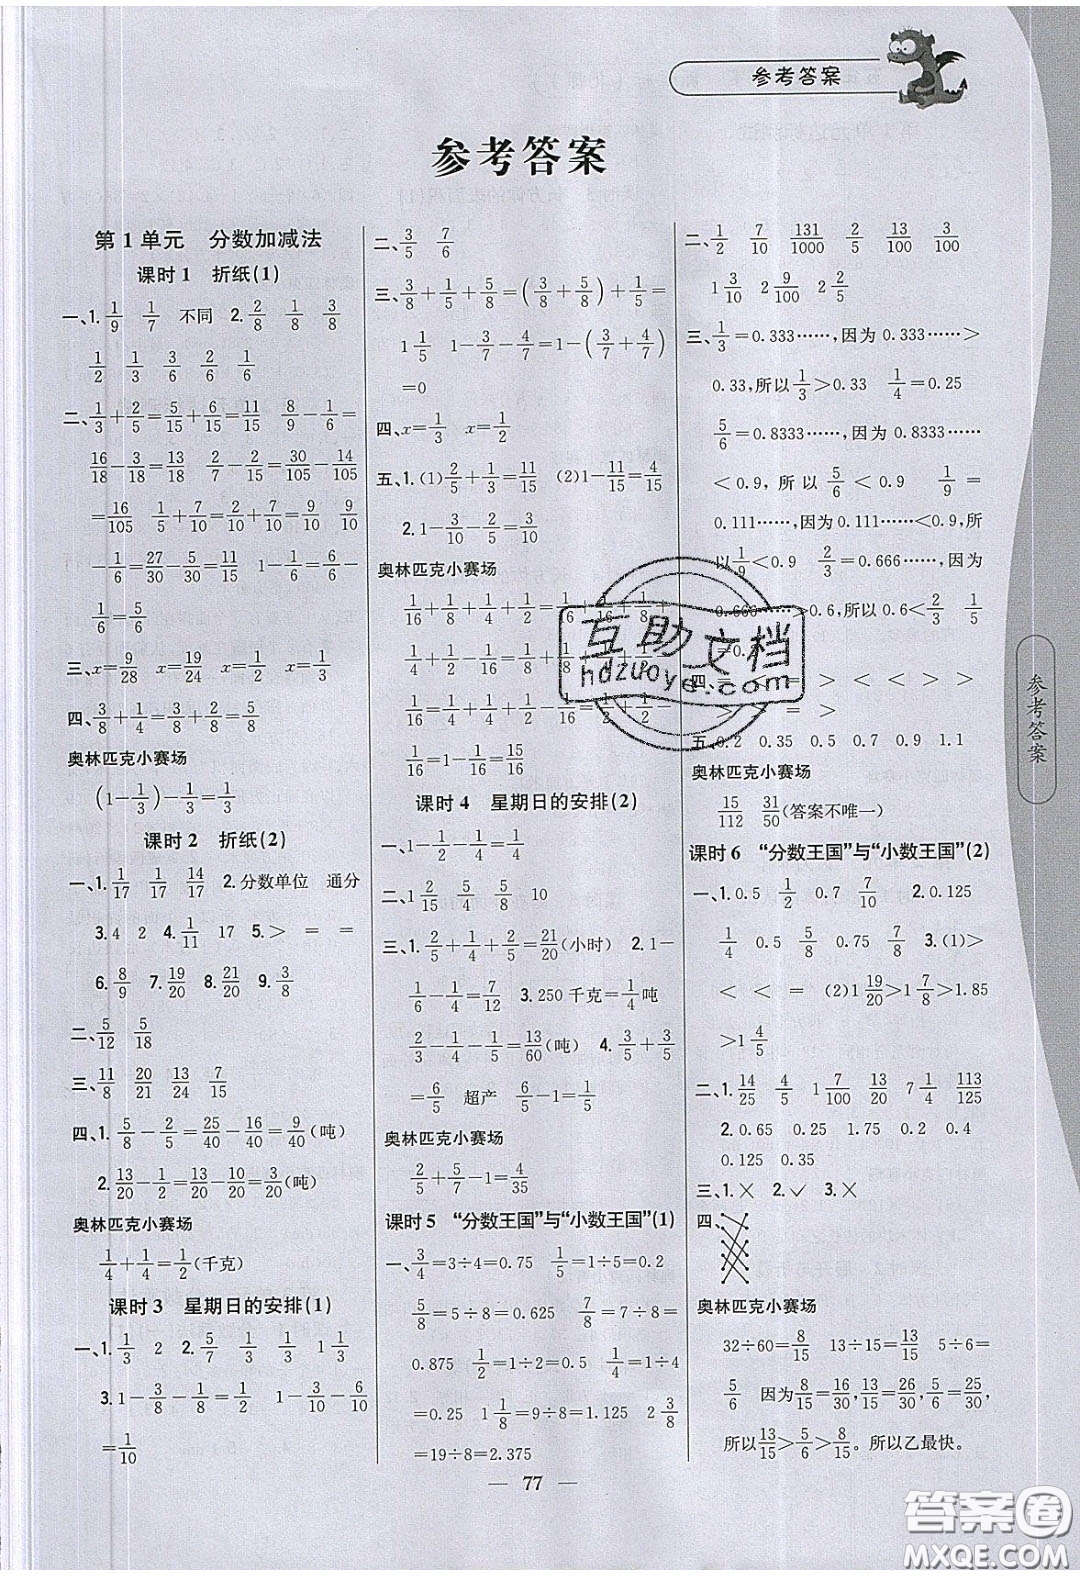 参考答案
参考答案
第1单元 分数加减法
课时1 折纸(1)
一、1. 1/9 1/7 不同 2. 2/8 1/8 3/8
1/2 1/3 3/6 2/6 1/6
二、1/3+2/5=5/15+6/15=11/15 8/9-1/6=
16/18-3/18=13/18 2/7-2/15=30/105-14/105
=16/105 1/5+7/10=2/10+7/10=9/10 9/10
-1/6=27/30-5/30=11/15 1-1/6=6/6-
1/6=5/6
三、x=9/28 x=19/24 x=1/2 x=1/3
四、3/8+1/4=3/8+2/8=5/8
奥林匹克小赛场
(1-1/3)-1/3=1/3
课时2 折纸(2)
一、1. 1/17 1/17 14/17 2.分数单位 通分
3.4 2 4. 1/11 17 5.> = =
6. 8/9 7. 19/20 8. 21/20 9. 3/8
二、5/12 5/18
三、11/8 20/21 13/24 7/15
四、1. 5/8-2/5=25/40-16/40=9/40(吨)
2. 13/20-1/2=13/20-10/20=3/20(吨)
奥林匹克小赛场
1/4+1/4=1/2(千克)
课时3 星期日的安排(1)
一、1. 1/3 2 2. 5/7 1/3 1/3 1 1/3
3. 1-3/8-1/8=1/2 1-3/10-6/10
=1/10
二、3/5 7/6
三、3/8+1/5+5/8=(3/8+5/8)+1/5=
1 1/5 1-3/7-4/7=1-(3/7+4/7)
=0
四、x=1/3 x=1/2
五、1.(1)2/5+1/3=11/15 (2)1-11/15=4/15
2. 1-3/10-2/5=3/10
奥林匹克小赛场
1/16+1/8+1/4+1/2=1/16+1/16+1/8+
1/4+1/2-1/16=1/8+1/8+
1/16=1/4+1/4+1/2-1/16=1/2+1/2-
1/16=1-1/16=15/16
课时4 星期日的安排(2)
一、1-1/2-1/4=1/4
二、1 2/15 4/5 5/8 10
三、1. 2/5+1/4+2/5=21/20(小时) 2. 1-
1/6-1/4=7/12 3. 250千克=1/4吨
2/3-1/4-1/5=13/60(吨) 4. 3/5+3/5
=6/5 超产 6/5-1=1/5
奥林匹克小赛场
2/5+5/7-1=4/35
课时5 “分数王国”与“小数王国”(1)
一、3/4=3÷4=0.75 1/5=1÷5=0.2
5/8=5÷8=0.625 7/8=7÷8=
0.875 1/2=1÷2=0.5 1/4=1÷4
=0.25 1 1/8=9÷8=1.125 2 3/8
=19÷8=2.375
二、1/2 7/10 131/1000 2/5 13/20 3/100
1 3/10 2 9/100 3/4
三、1/3=0.333……,因为0.333……>
0.33,所以1/3>0.33 1/4=0.25
5/6=0.8333……,因为0.8333……
<0.9,所以5/6<0.9 1/9=
0.111……,因为0.111……<0.9,所
以1/9<0.9 2/3=0.666……,因为
0.666……>0.6,所以0.6<2/3 1/5
=0.2
四、= = > < < > >
> > = >
五、0.2 0.35 0.5 0.9 1.1
奥林匹克小赛场
15/112 31/50(答案不唯一)
课时6 “分数王国”与“小数王国”(2)
一、1. 0.5 1/2 0.7 7/10 2. 0.125
1/4 0.5 5/8 0.75 7/8 3.(1)>
< < = (2)1 19/20>1 7/8>1.85
>1 4/5
二、1. 14/25 4/5 1 7/100 17/20 7 1/4 113/125
2. 0.65 0.25 1.75 0.2 0.4
0.125 0.35
三、1.× 2.✓ 3.×
四、
奥林匹克小赛场
32÷60=8/15 13÷15=13/15 5÷6=
5/6 因为8/15=16/30,13/15=26/30,5/6=25/30,
所以13/15>5/6>8/15。所以乙最快。
参考答案
77
互助文档
hdzuoye.com
答案圈
MXQE.COM